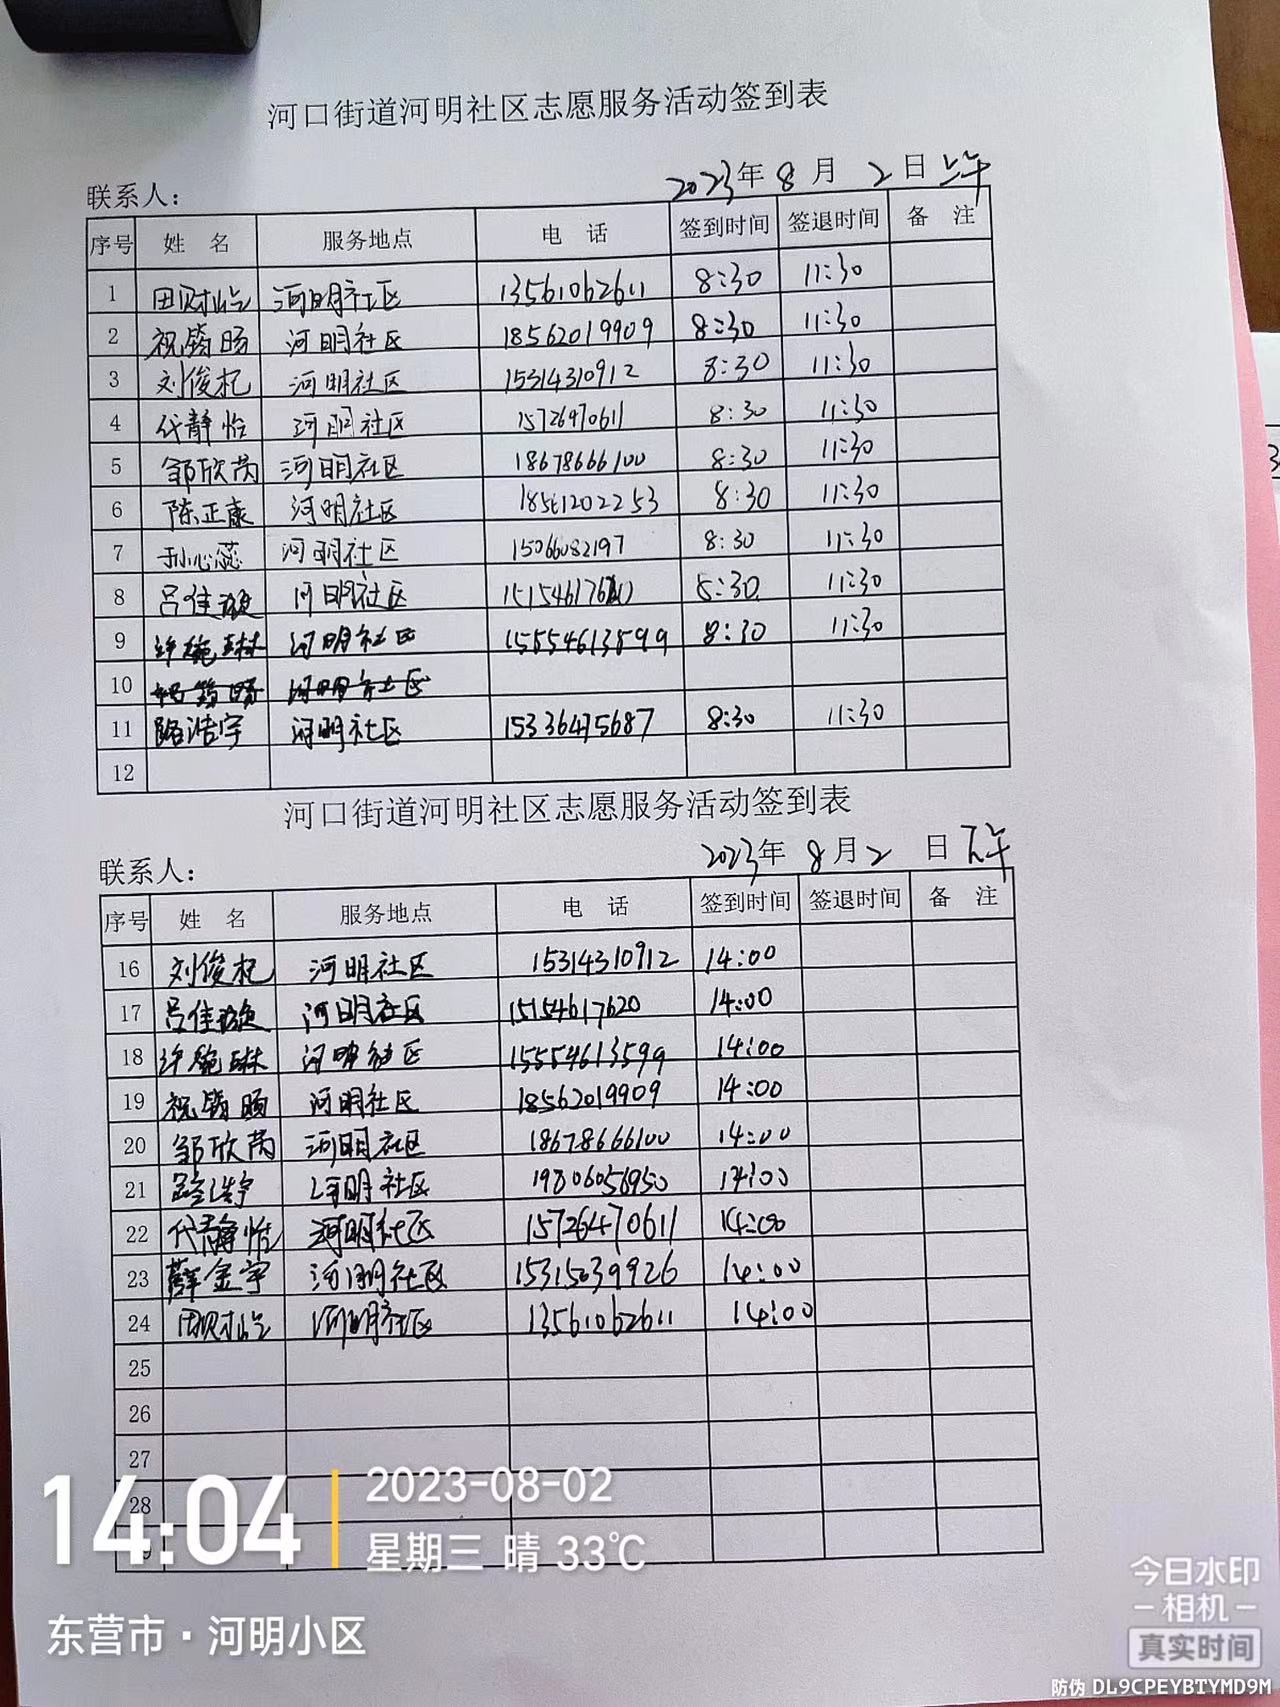 河口街道河明社区志愿服务活动签到表
联系人： 2023年 8 月 2 日 上午
序号 姓 名 服务地点 电 话 签到时间 签退时间 备 注
1 河明社区 13561062611 8:30 11:30
2 祝筠旸 河明社区 18562019909 8:30 11:30
3 刘俊杞 河明社区 15314310912 8:30 11:30
4 代静怡 河明社区 15726470611 8:30 11:30
5 邹欣芮 河明社区 18678666100 8:30 11:30
6 陈正康 河明社区 18561202253 8:30 11:30
7 孙心蕊 河明社区 15066082197 8:30 11:30
8 吕佳璇 河明社区 8:30 11:30
9 许琬琳 河明社区 15554613599 8:30 11:30
10 河明社区
11 路浩宇 河明社区 15336475687 8:30 11:30
12
河口街道河明社区志愿服务活动签到表
联系人： 2023年 8月2 日 下午
序号 姓 名 服务地点 电 话 签到时间 签退时间 备 注
16 刘俊杞 河明社区 15314310912 14:00
17 吕佳璇 河明社区 15154617620 14:00
18 许琬琳 河明社区 15554613599 14:00
19 祝筠旸 河明社区 18562019909 14:00
20 邹欣芮 河明社区 18678666100 14:00
21 路浩宇 河明社区 19806056950 14:00
22 代静怡 河明社区 15726470611 14:00
23 薛金宇 河明社区 15315039926 14:00
24 河明社区 13561062611 14:00
25
26
27
28
14:04
2023-08-02
星期三 晴 33℃
东营市·河明小区
今日水印
相机
真实时间
防伪 DL9CPEYBTYMD9M